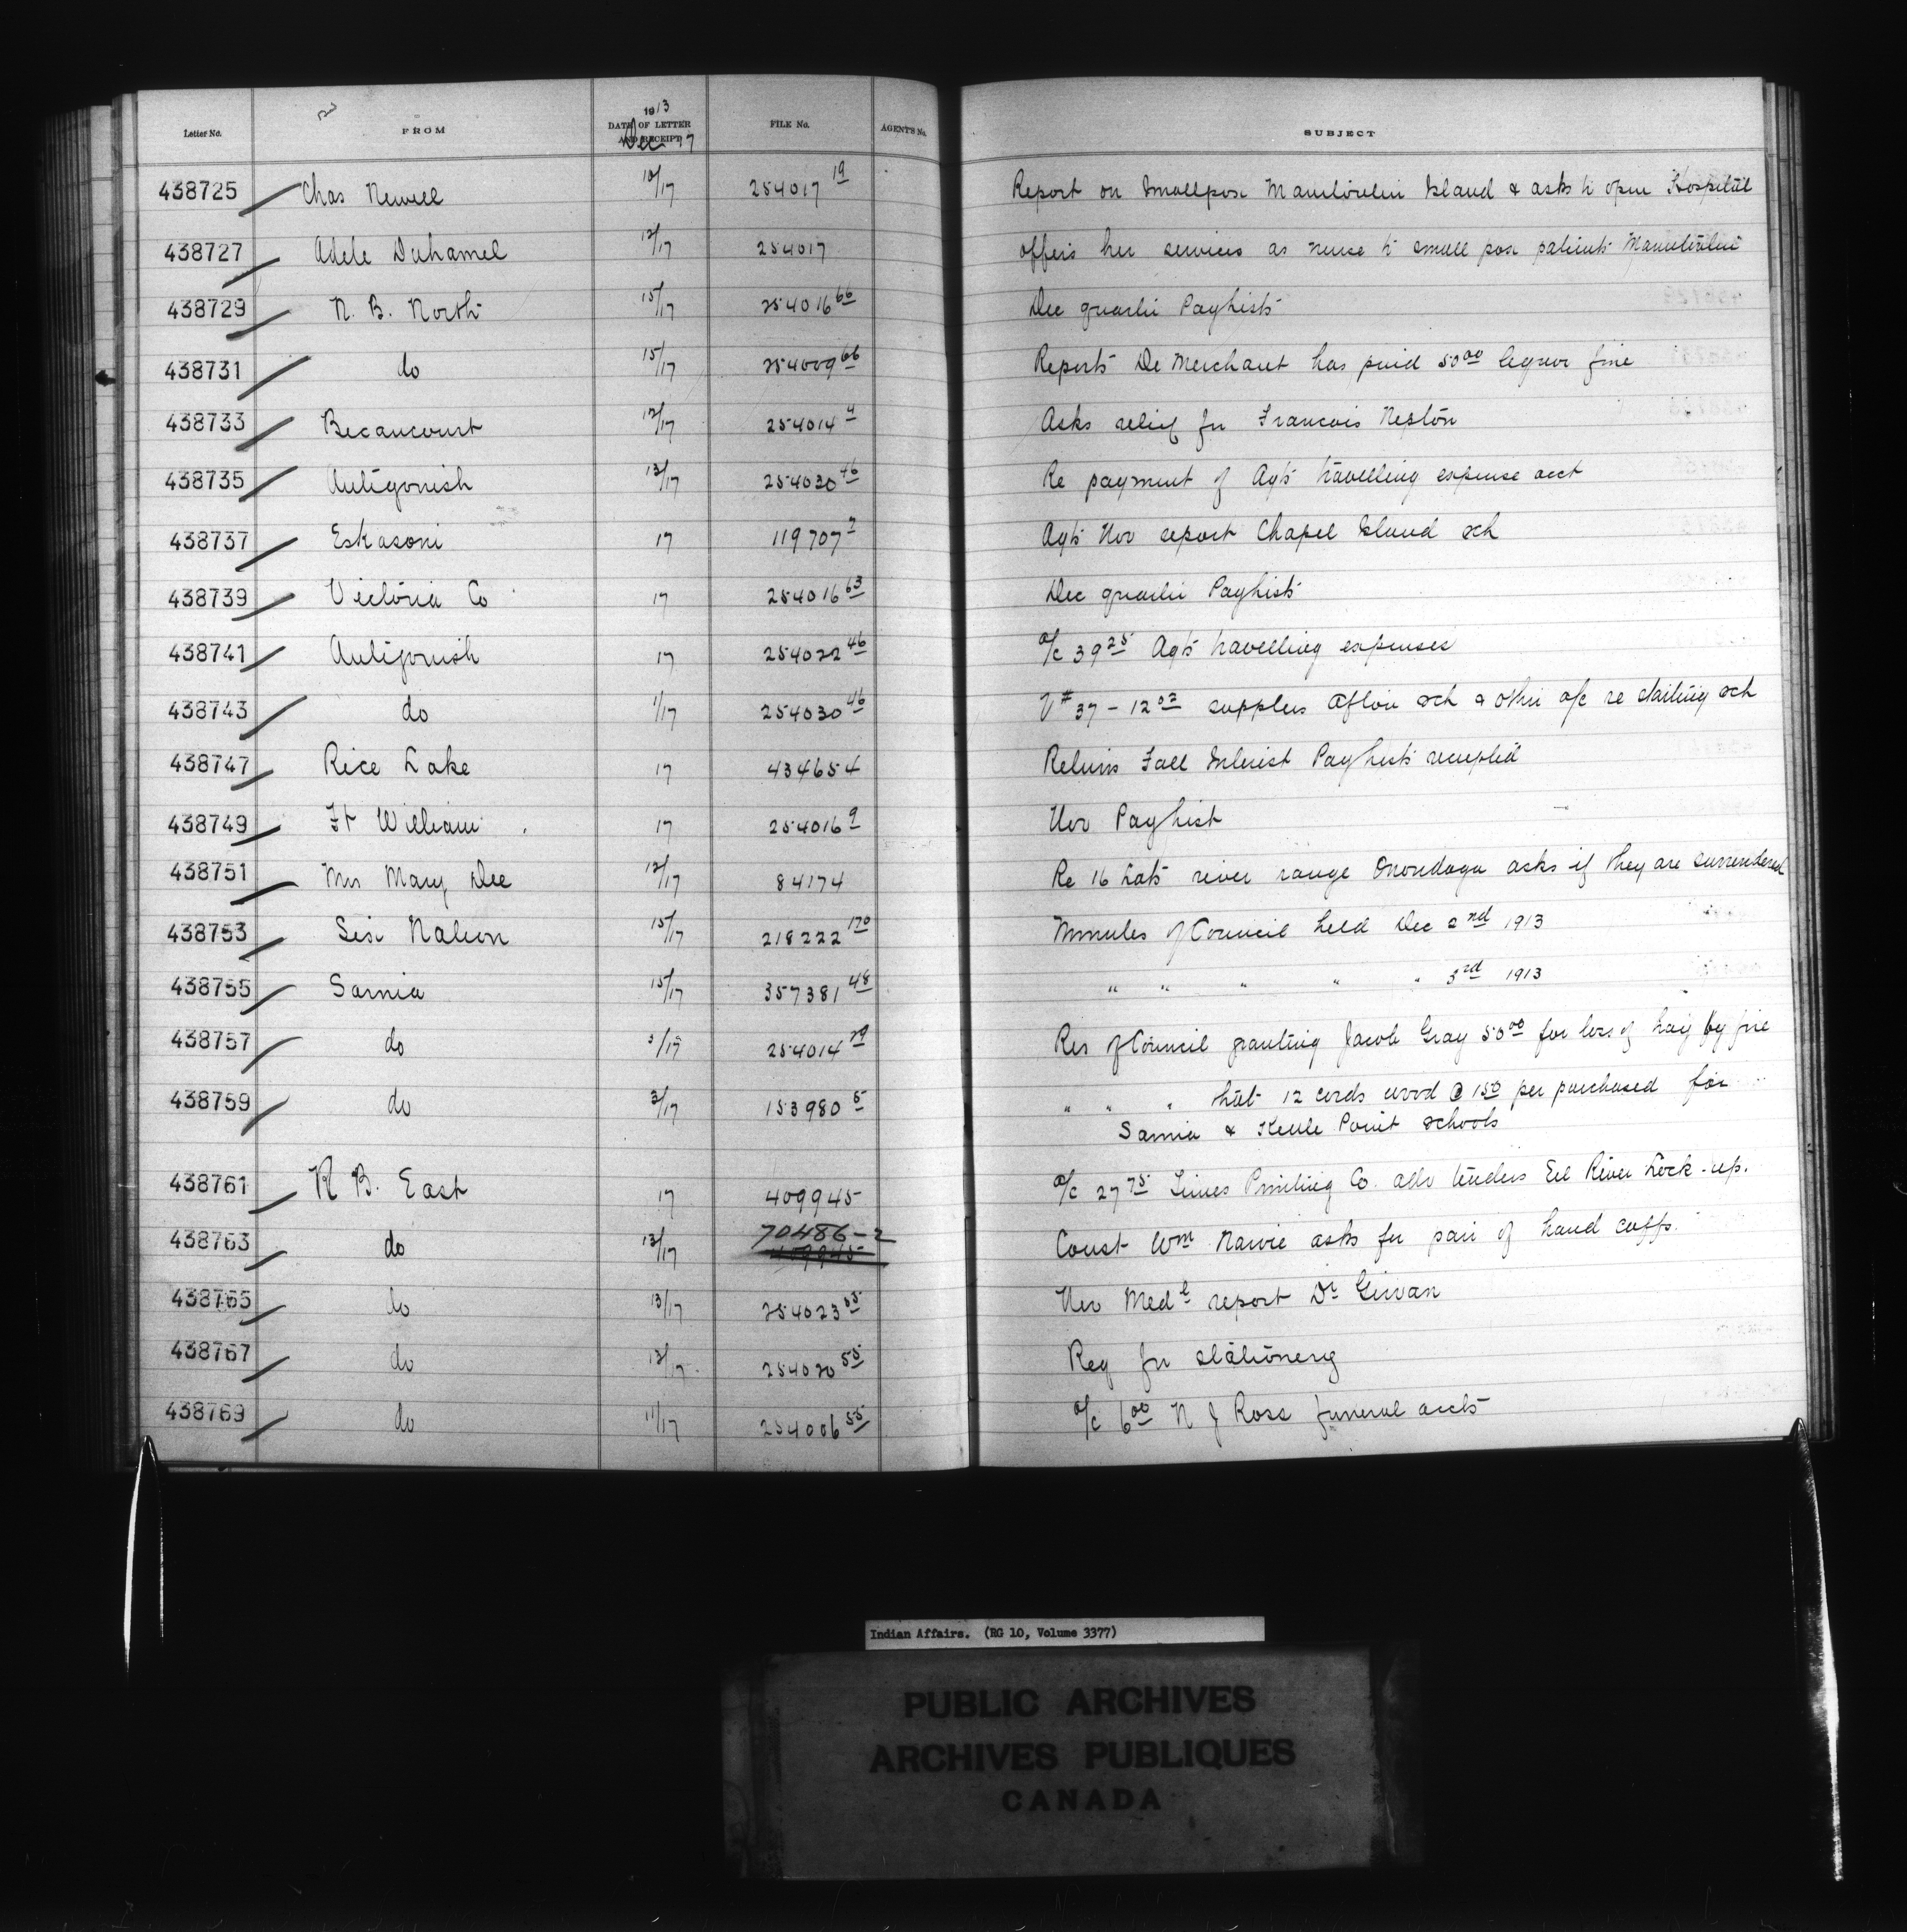 1913
Letter No. FROM DATE OF LETTER AND RECEIPT FILE No. AGENT'S No. SUBJECT
Dec 17
438725 Chas Newell 10/17 254017 19 Report on Smallpox Manitoulin Island & asks to open Hospital
438727 Adele Duhamel 12/17 254017 offers her services as nurse to small pox patients Manitoulin
438729 N. B. North 15/17 254016 66 Dec quarter Paylists
438731 do 15/17 254009 66 Reports De Merchant has paid 50 00 liquor fine
438733 Becancourt 12/17 254014 4 Asks relief for Francois Neptōn
438735 Antigonish 13/17 254030 46 Re payment of Agts travelling expense acct
438737 Eskasoni 17 119707 7 Agts Nov report Chapel Island sch
438739 Victoria Co 17 254016 63 Dec quarter Paylists
438741 Antigonish 17 254022 46 a/c 39 25 Agts travelling expenses
438743 do 1/17 254030 46 V# 37 - 12 02 supplies Afton sch & other a/c re starting sch
438747 Rice Lake 17 434654 Returns Fall Interest Paylists receipted
438749 Ft William 17 254016 9 Nov Paylist
438751 Mrs Mary Dee 12/17 84174 Re 16 Lots river range Onondaga asks if they are surrendered
438753 Six Nation 15/17 218222 170 Minutes of Council held Dec 2nd 1913
438755 Sarnia 15/17 357381 48 " " " " " 3rd 1913
438757 do 3/17 254014 29 Res of Council granting Jacob Gray 50 00 for loss of hay by fire
438759 do 3/17 153980 5 " " " that 12 cords wood @ 1 50 per purchased for
Sarnia & Kettle Point schools
438761 N B. East 17 409945 a/c 27 75 Times Printing Co. adv tenders Eel River Lock-up.
438763 do 13/17 70486-2 Const Wm Narvie asks for pair of hand cuffs.
409945
438765 do 13/17 254023 55 Nov Medl report Dr Girvan
438767 do 13/17 254020 55 Req for stationery
438769 do 11/17 254006 55 a/c 6 00 N J Ross funeral accts
Indian Affairs. (RG 10, Volume 3377)
PUBLIC ARCHIVES
ARCHIVES PUBLIQUES
CANADA